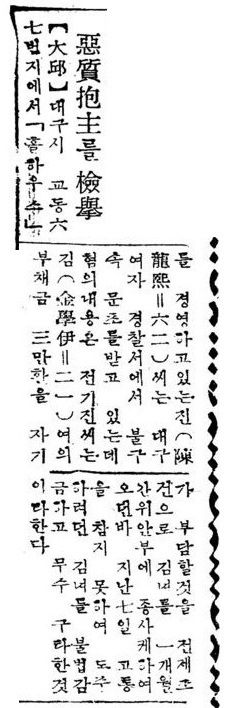 惡質抱主를 檢擧
【大邱】대구시 교동六
七번지에서「홀하우스」
를 경영하고있는진(陳
龍熙=六二)씨는 대구
여자 경찰서에서 불구
속 문초를받고 있는데
혐의내용은 전기진씨는
김(金學伊=二一)여의
부채금 三만환을 자기
가 부담할것을 전제조
건으로 김녀를 一개월
간위안부에 종사케하여
오던바 지난七일 고통
을 참지 못하여 도주
하려던 김녀를 불법감
금하고 무수 구타한것
이라한다